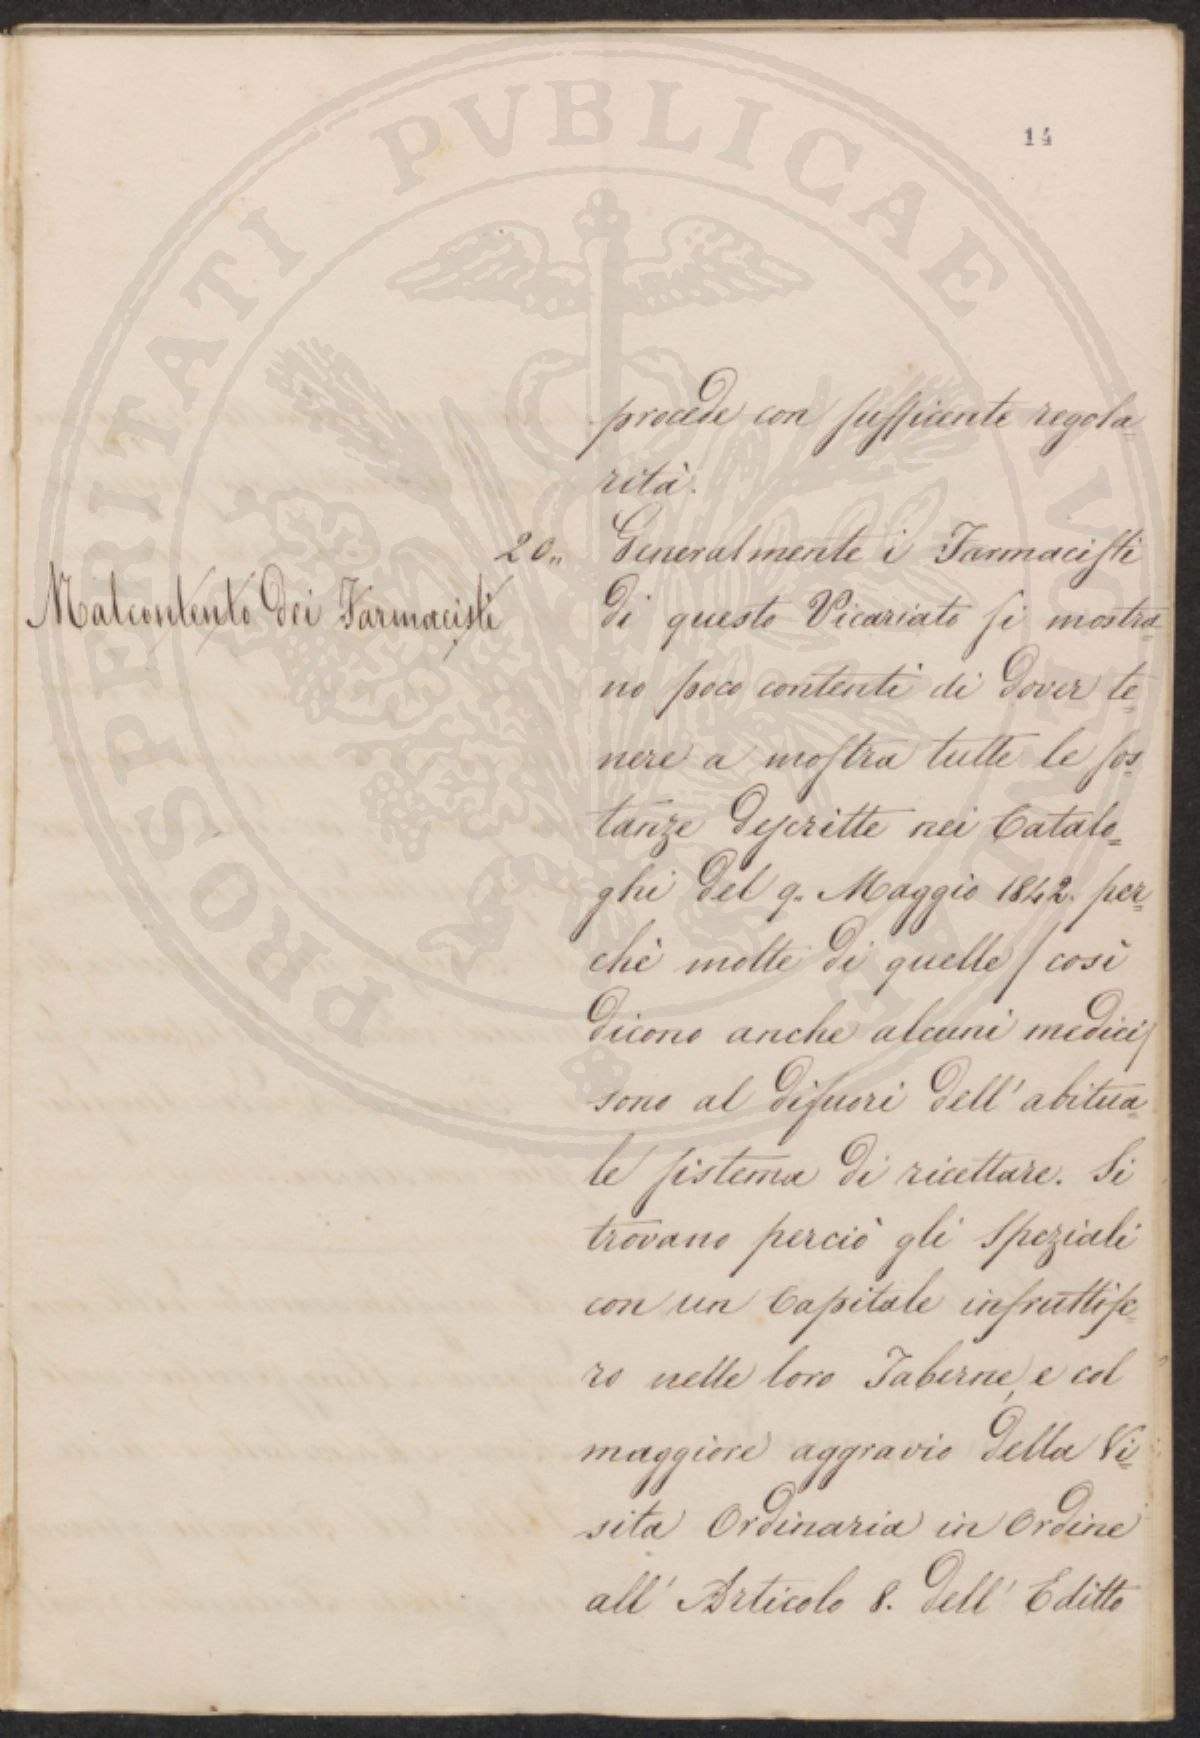 14
procede con sufficente regola=
rità.
20.. Generalmente i Farmacisti
Malcontento dei Farmacisti
di questo Vicariato si mostra=
no poco contenti di dover te=
nere a mostra tutte le sos=
tanze descritte nei Catalo=
ghi del 9. Maggio 1842. per=
chè molte di quelle / così
dicono anche alcuni medici /
sono al difuori dell' abitua=
le sistema di ricettare. Si
trovano perciò gli Speziali
con un Capitale infruttife=
ro nelle loro Taberne, e col
maggiore aggravio della Vi=
sita Ordinaria in Ordine
all' Articolo 8. dell' Editto
PROSPERITATI PVBLICAE